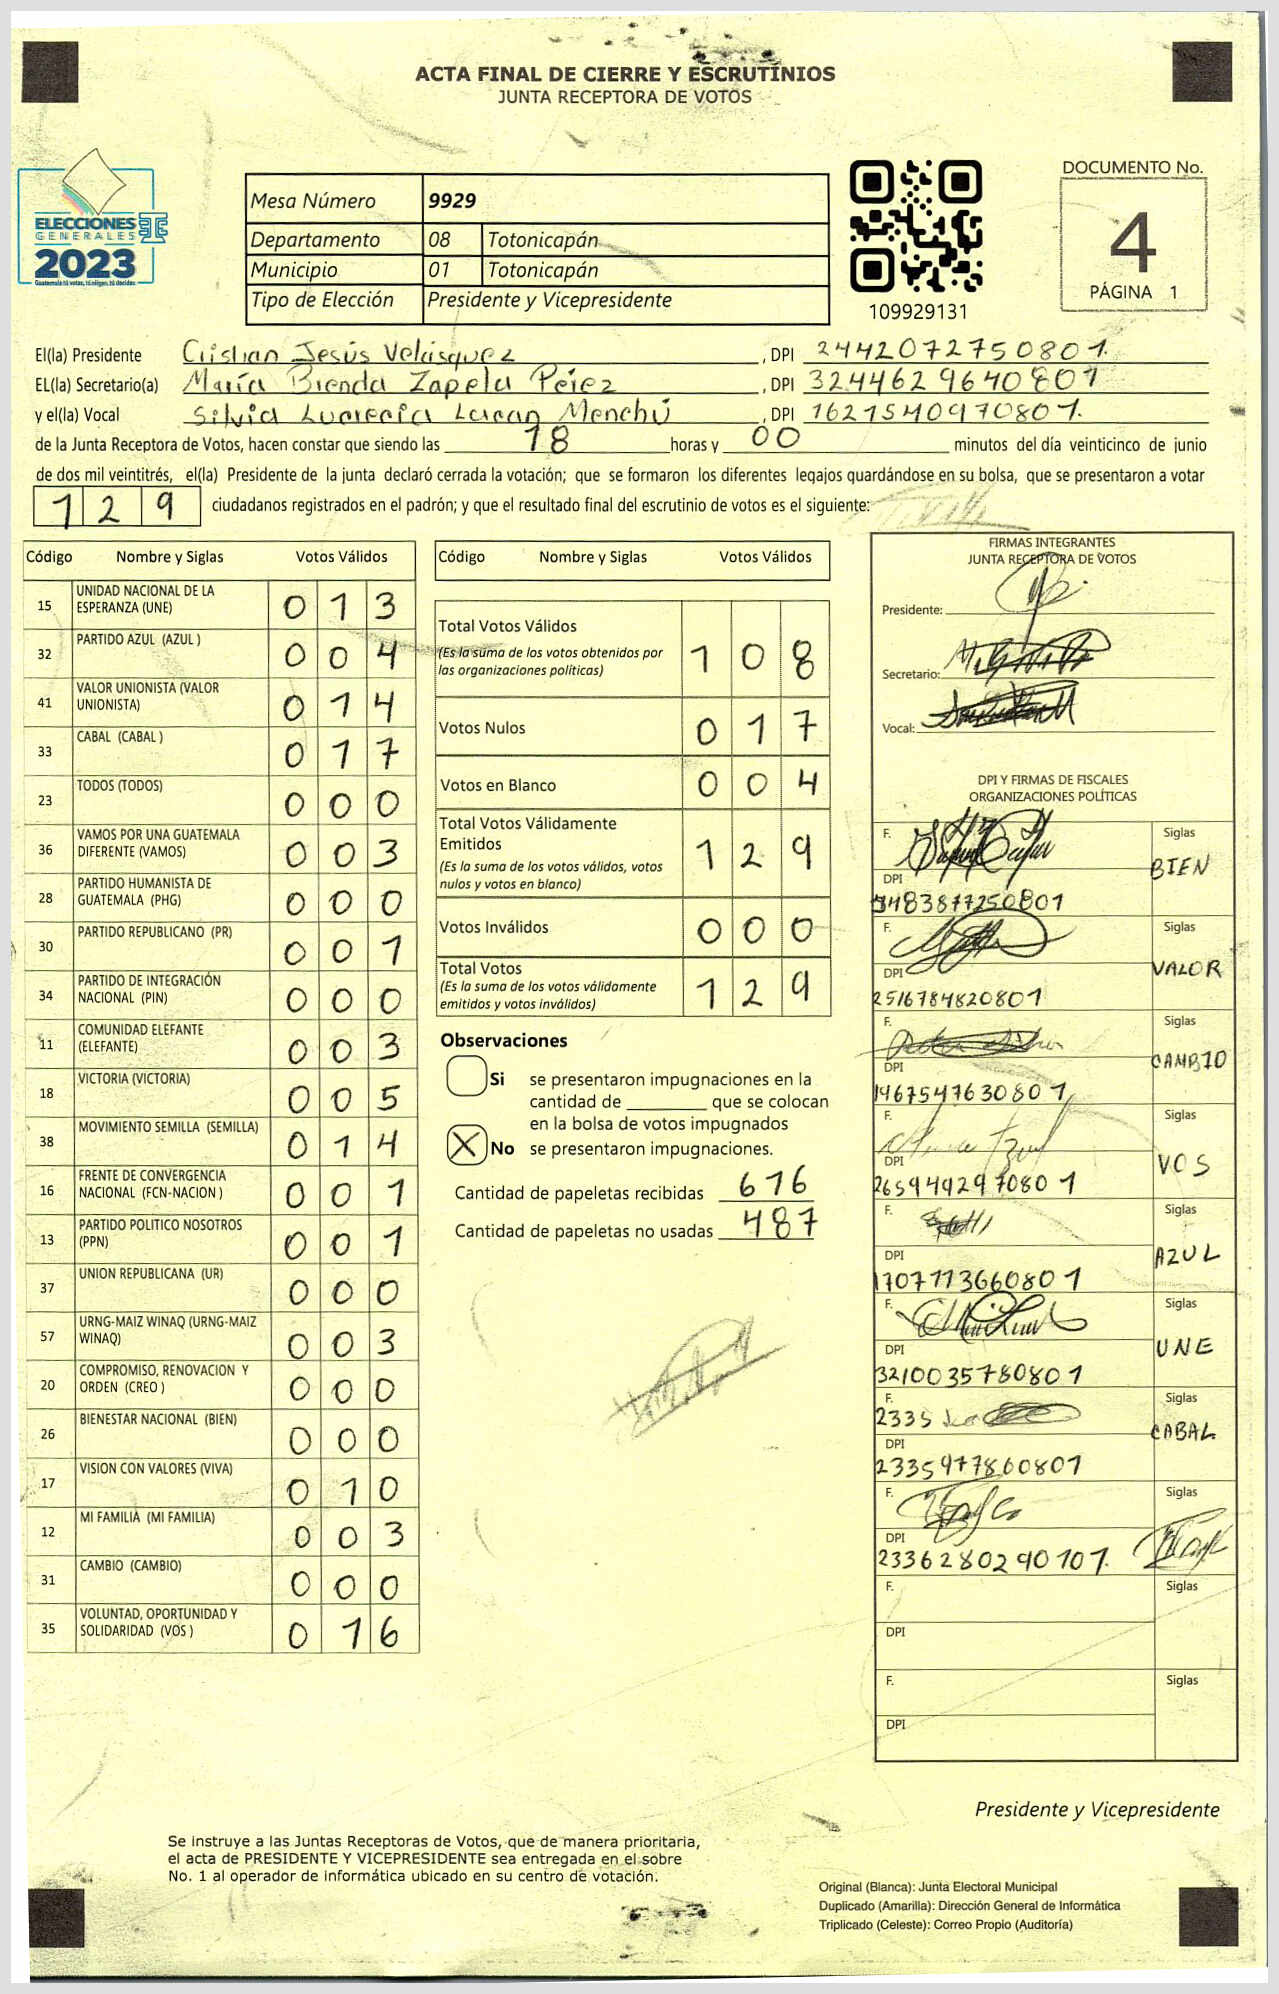 ACTA FINAL DE CIERRE Y ESCRUTINIOS
JUNTA RECEPTORA DE VOTOS
ELECCIONES
GENERALES
2023
Guatemala tú votas, tú eliges, tú decides
Mesa Número 9929
Departamento 08 Totonicapán
Municipio 01 Totonicapán
Tipo de Elección Presidente y Vicepresidente
109929131
DOCUMENTO No.
4
PÁGINA 1
El(la) Presidente Cristian Jesús Velásquez , DPI 2442072750801.
EL(la) Secretario(a) María Brenda Zapeta Pérez , DPI 3244629640801
y el(la) Vocal Silvia Lucrecia Lacan Menchú , DPI 1621540970801.
de la Junta Receptora de Votos, hacen constar que siendo las 18 horas y 00 minutos del día veinticinco de junio
de dos mil veintitrés, el(la) Presidente de la junta declaró cerrada la votación; que se formaron los diferentes legajos guardándose en su bolsa, que se presentaron a votar
129 ciudadanos registrados en el padrón; y que el resultado final del escrutinio de votos es el siguiente:
Código Nombre y Siglas Votos Válidos
15 UNIDAD NACIONAL DE LA ESPERANZA (UNE) 0 1 3
32 PARTIDO AZUL (AZUL ) 0 0 4
41 VALOR UNIONISTA (VALOR UNIONISTA) 0 1 4
33 CABAL (CABAL ) 0 1 7
23 TODOS (TODOS) 0 0 0
36 VAMOS POR UNA GUATEMALA DIFERENTE (VAMOS) 0 0 3
28 PARTIDO HUMANISTA DE GUATEMALA (PHG) 0 0 0
30 PARTIDO REPUBLICANO (PR) 0 0 1
34 PARTIDO DE INTEGRACIÓN NACIONAL (PIN) 0 0 0
11 COMUNIDAD ELEFANTE (ELEFANTE) 0 0 3
18 VICTORIA (VICTORIA) 0 0 5
38 MOVIMIENTO SEMILLA (SEMILLA) 0 1 4
16 FRENTE DE CONVERGENCIA NACIONAL (FCN-NACION ) 0 0 1
13 PARTIDO POLITICO NOSOTROS (PPN) 0 0 1
37 UNION REPUBLICANA (UR) 0 0 0
57 URNG-MAIZ WINAQ (URNG-MAIZ WINAQ) 0 0 3
20 COMPROMISO, RENOVACION Y ORDEN (CREO ) 0 0 0
26 BIENESTAR NACIONAL (BIEN) 0 0 0
17 VISION CON VALORES (VIVA) 0 1 0
12 MI FAMILIA (MI FAMILIA) 0 0 3
31 CAMBIO (CAMBIO) 0 0 0
35 VOLUNTAD, OPORTUNIDAD Y SOLIDARIDAD (VOS ) 0 1 6
Código Nombre y Siglas Votos Válidos
Total Votos Válidos
(Es la suma de los votos obtenidos por las organizaciones políticas) 1 0 8
Votos Nulos 0 1 7
Votos en Blanco 0 0 4
Total Votos Válidamente Emitidos
(Es la suma de los votos válidos, votos nulos y votos en blanco) 1 2 9
Votos Inválidos 0 0 0
Total Votos
(Es la suma de los votos válidamente emitidos y votos inválidos) 1 2 9
Observaciones
Si se presentaron impugnaciones en la
cantidad de ________ que se colocan
en la bolsa de votos impugnados
X No se presentaron impugnaciones.
Cantidad de papeletas recibidas 616
Cantidad de papeletas no usadas 487
FIRMAS INTEGRANTES
JUNTA RECEPTORA DE VOTOS
Presidente:
Secretario:
Vocal:
DPI Y FIRMAS DE FISCALES
ORGANIZACIONES POLÍTICAS
F. Siglas
BIEN
DPI
3483877250801
F. Siglas
VALOR
DPI
2516784820801
F. Siglas
CAMBIO
DPI
1467547630801
F. Siglas
VOS
DPI
26594492970801
F. Siglas
AZUL
DPI
1707113660801
F. Siglas
UNE
DPI
3210035780801
F. 2335 Siglas
CABAL
DPI
2335977860801
F. Siglas
DPI
2336280290101.
F. Siglas
DPI
F. Siglas
DPI
Presidente y Vicepresidente
Se instruye a las Juntas Receptoras de Votos, que de manera prioritaria,
el acta de PRESIDENTE Y VICEPRESIDENTE sea entregada en el sobre
No. 1 al operador de informática ubicado en su centro de votación.
Original (Blanca): Junta Electoral Municipal
Duplicado (Amarilla): Dirección General de Informática
Triplicado (Celeste): Correo Propio (Auditoría)